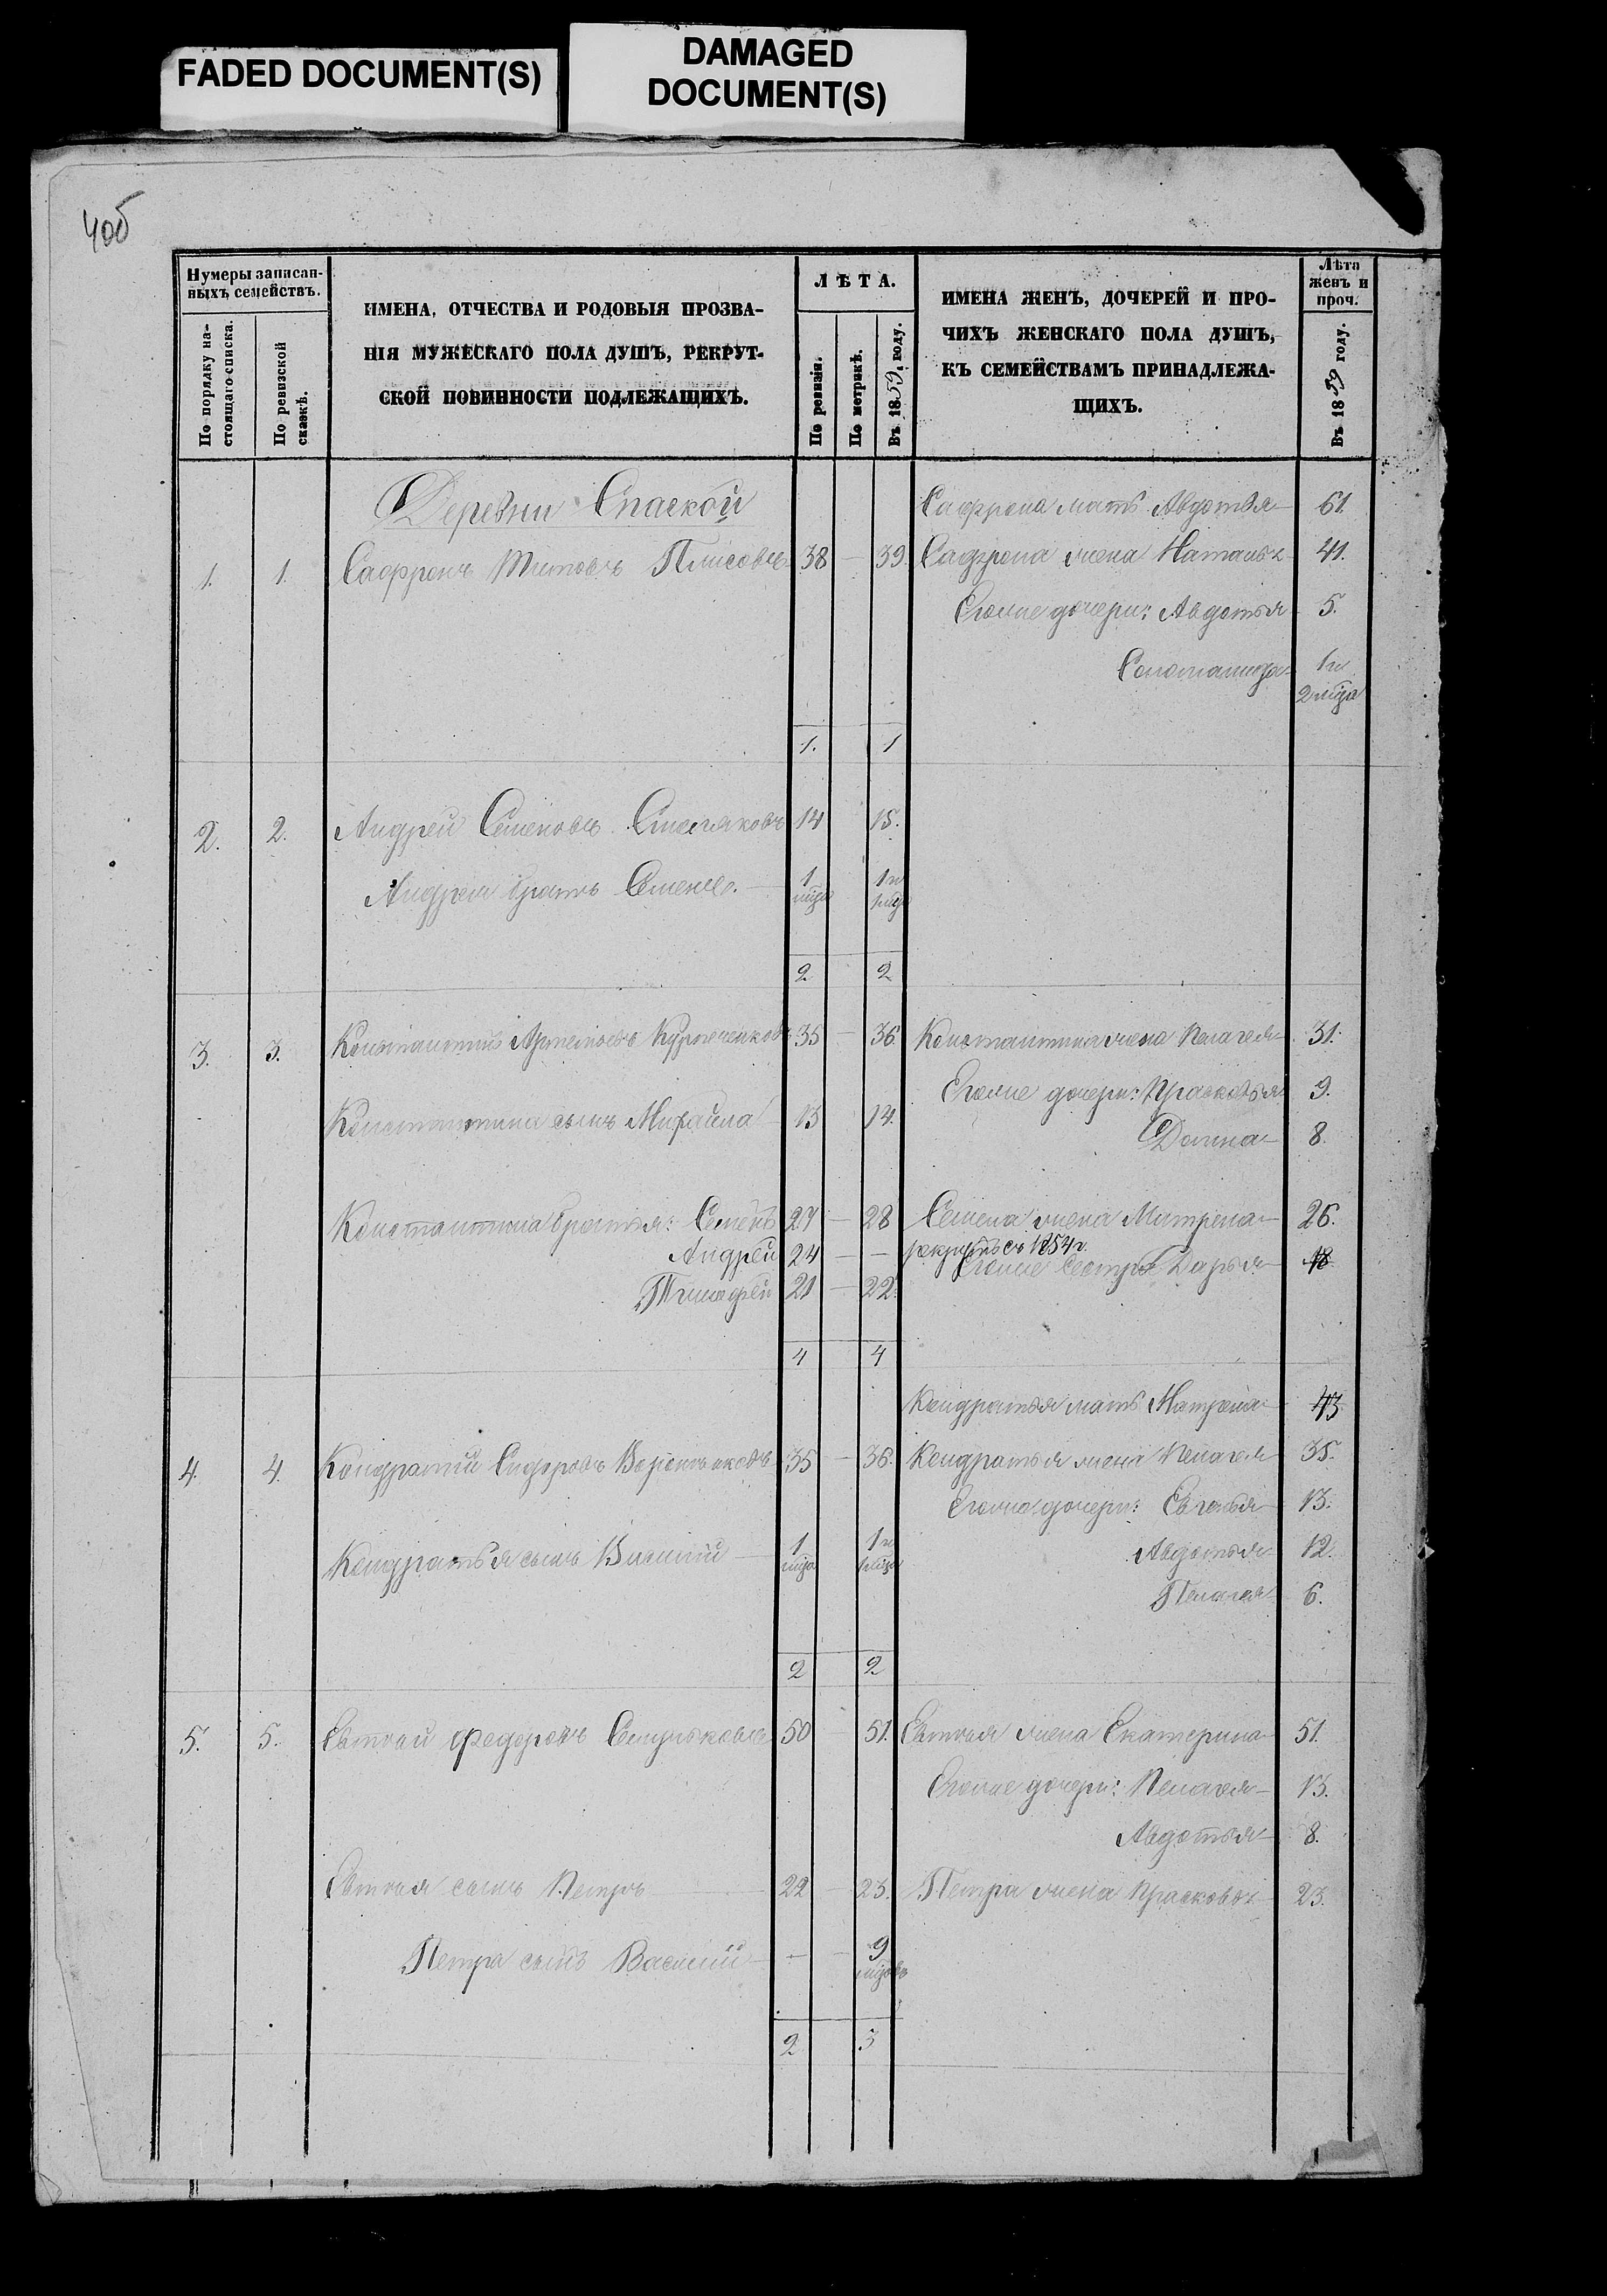 FADED DOCUMENT(S)
DAMAGED
DOCUMENT(S)
400
Нумеры записан-
ныхъ семействъ.
По порядку на-
стоящаго списка.
По ревизской
сказкѣ.
ИМЕНА, ОТЧЕСТВА И РОДОВЫЯ ПРОЗВА-
НІЯ МУЖЕСКАГО ПОЛА ДУШЪ, РЕКРУТ-
СКОЙ ПОВИННОСТИ ПОДЛЕЖАЩИХЪ.
ЛѢТА.
По ревизіи.
По метрикѣ.
Въ 1859 году.
ИМЕНА ЖЕНЪ, ДОЧЕРЕЙ И ПРО-
ЧИХЪ ЖЕНСКАГО ПОЛА ДУШЪ,
КЪ СЕМЕЙСТВАМЪ ПРИНАДЛЕЖА-
ЩИХЪ.
Лѣта
женъ и
проч.
Въ 1859 году.
Деревни Спаской
Сафрона мать Авдотья 61.
1. 1. Сафронъ Титовъ 38 — 39. Сафрона жена Наталья 41.
Егоже дочери: Авдотья 5.
1 и
2 мѣца
1. 1
2. 2. Андрей Семеновъ 14 15.
Андрея братъ Семенъ. 1 мѣца 1 и 1 мѣца
2 2
3. 3. Константинъ Артемьевъ 35 — 36. Константина жена Пелагея 31.
Егоже дочери: Прасковья 9.
Константина сынъ Михайла 13 14.
Домна 8.
Константина братья: Семенъ 27 — 28 Семена жена Матрена 26.
Андрей 24 — — рекрутъ съ 1854 г.
Егоже сестра Дарья 18.
Тимофей 21 — 22.
4 4
Кондратья мать Матрена 43
4. 4. Кондратій Сидоровъ 35 — 36. Кондратья жена Пелагея 35.
Егоже дочери: Евгенья 13.
Кондратья сынъ 1 мѣца 1 и 1 мѣца
Авдотья 12.
Пелагея 6.
2 2
5. 5. Евтѣй Федоровъ 50 51. Евтѣя жена Екатерина 51.
Егоже дочери: Пелагея 13.
Авдотья 8.
Евтѣя сынъ Петръ 22 — 23. Петра жена Прасковья 23.
Петра сынъ Василій — — 9 мѣцовъ
2 3